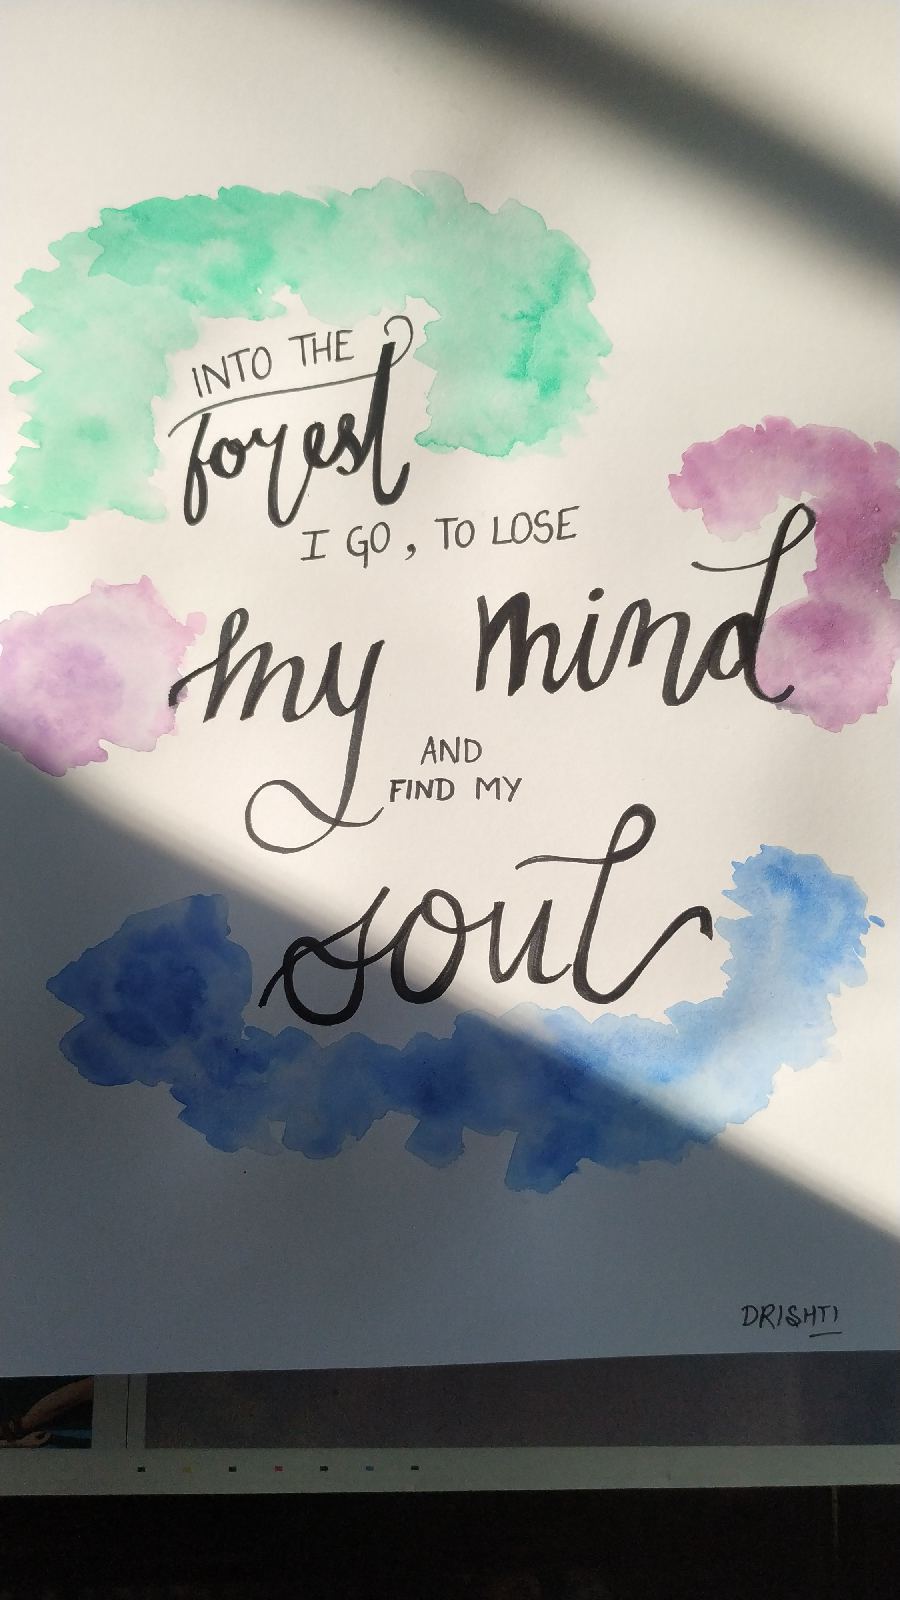 INTO THE
forest
I GO, TO LOSE
my mind
AND
FIND MY
soul
DRISHTI